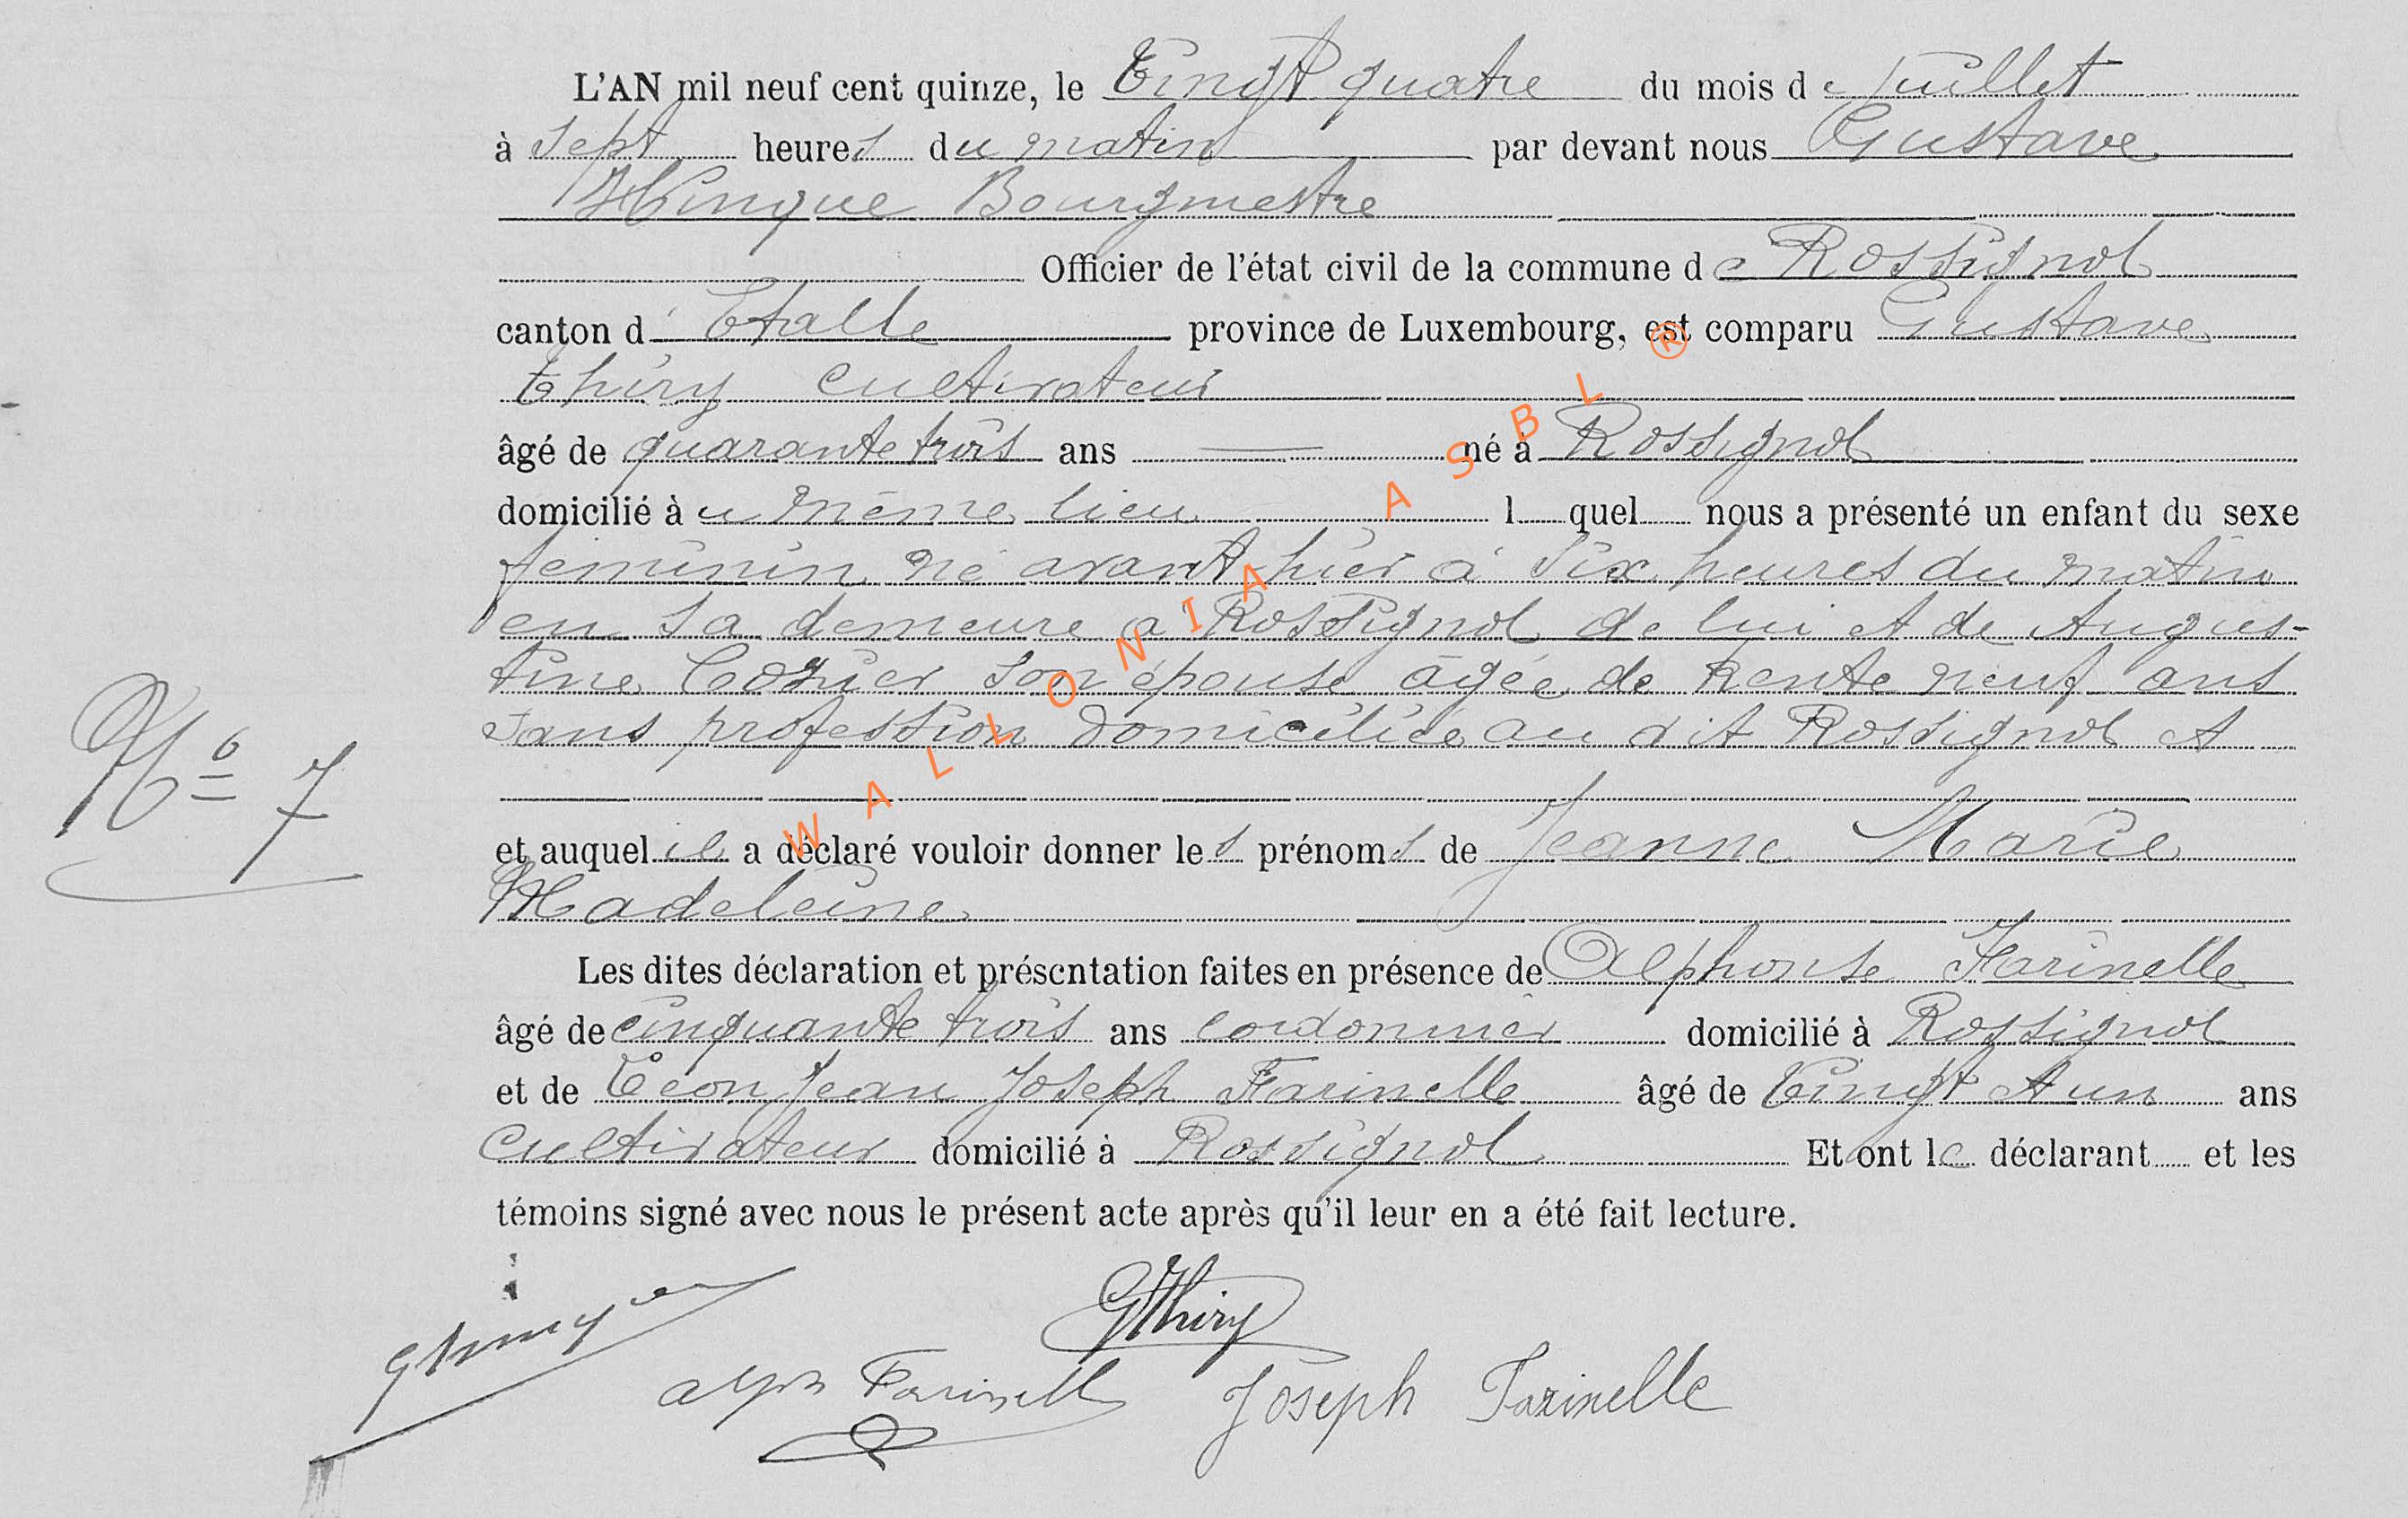 L'AN mil neuf cent quinze, le Vingt quatre du mois de Juillet
à sept heures du matin par devant nous Gustave
Hinque Bourgmestre
Officier de l'état civil de la commune de Rossignol
canton d'Etalle province de Luxembourg, est comparu Gustave
Thiry cultivateur
âgé de quarante trois ans né à Rossignol
domicilié au même lieu l quel nous a présenté un enfant du sexe
féminin né avant hier à six heures du matin
en sa demeure à Rossignol de lui et de Augus-
tine son épouse âgée de trente neuf ans
sans profession domiciliée au dit Rossignol et
et auquel il a déclaré vouloir donner les prénoms de Jeanne Marie
Madeleine
Les dites déclaration et présentation faites en présence de Alphonse Farinelle
âgé de cinquante trois ans cordonnier domicilié à Rossignol
et de Léon Jean Joseph Farinelle âgé de Vingt et un ans
cultivateur domicilié à Rossignol Et ont le déclarant et les
témoins signé avec nous le présent acte après qu'il leur en a été fait lecture.
No 7
GThiry
Alph Farinelle Joseph Farinelle
WALLONIA ASBL ®